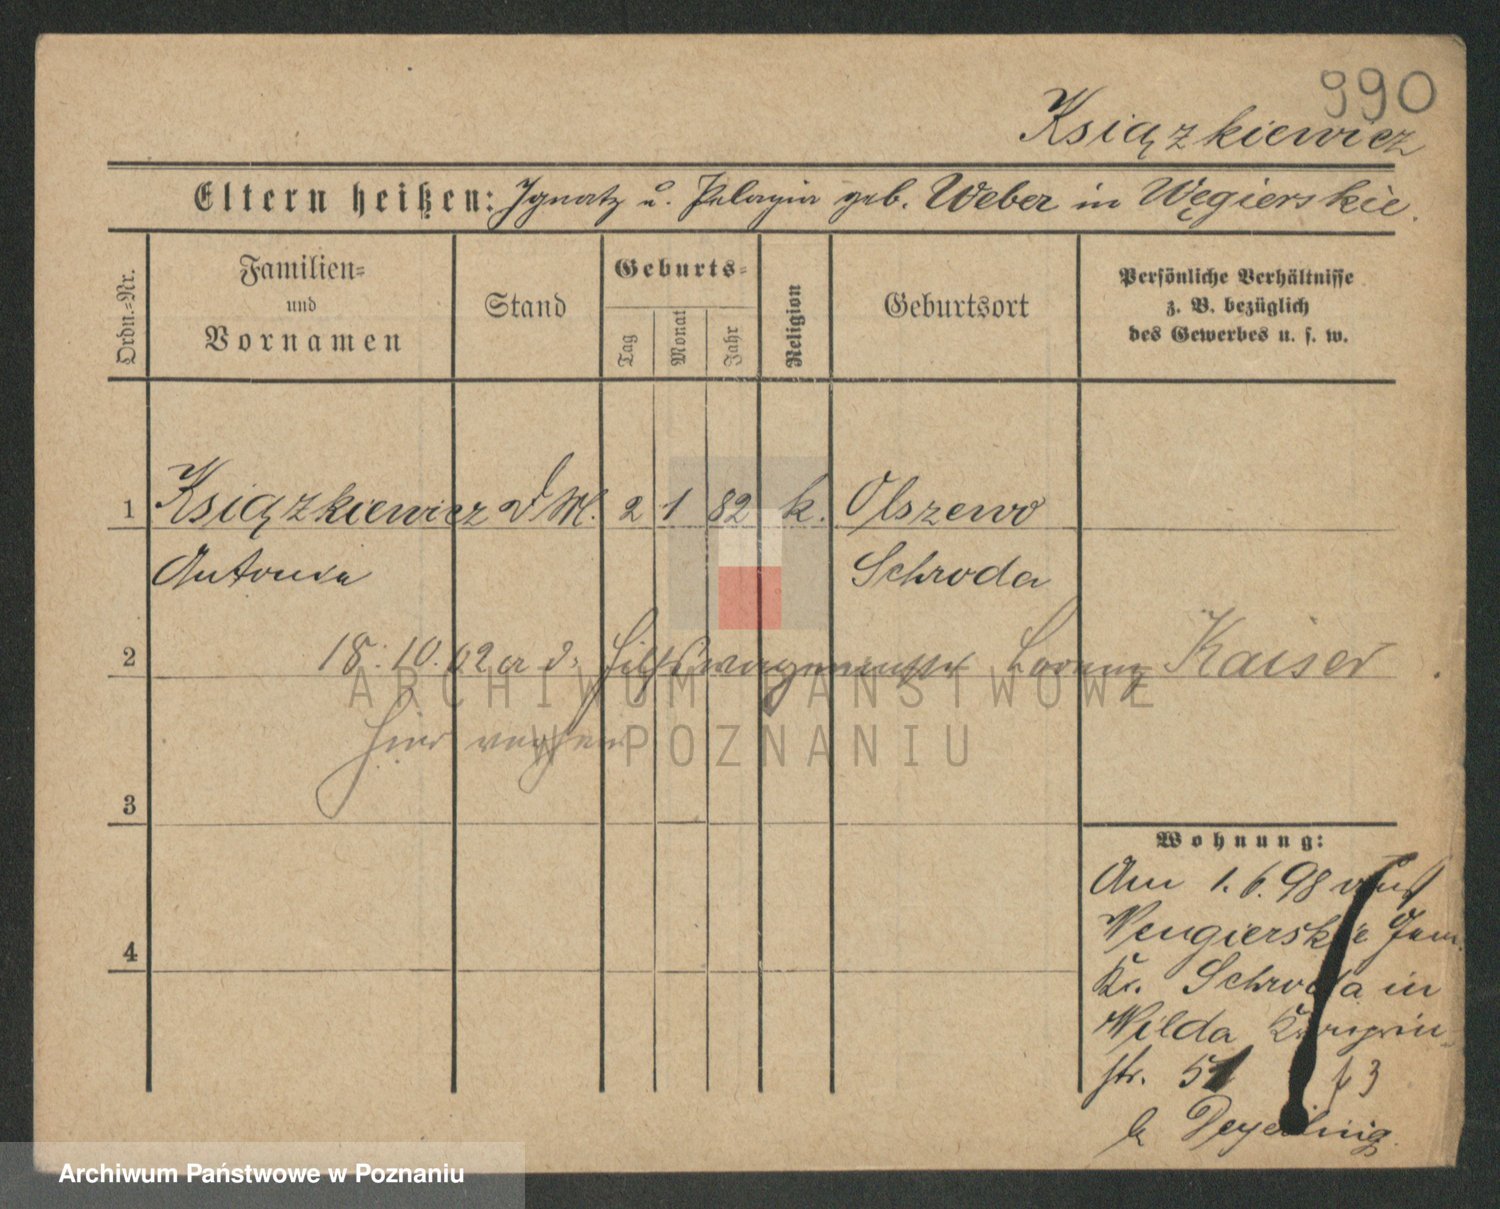 990
Książkiewicz
Eltern heißen: Ignatz u. Pelagia geb. Weber in Węgierskie.
Ordn.-Nr.
Familien-
und
Vornamen
Stand
Geburts-
Tag
Monat
Jahr
Religion
Geburtsort
Persönliche Verhältnisse
z. B. bezüglich
des Gewerbes u. s. w.
1 Książkiewicz D M. 2 1 82 k. Olszewo
Antonia Schroda
2 18. 10. 02 a d. Hilfswagenmeister Lorenz Kaiser
hier
ARCHIWUM PAŃSTWOWE
W POZNANIU
3
Wohnung:
Am 1. 6. 98 aus
Wengierskie
4
Kr. Schroda in
Wilda Kronprin-
str. 51
b
Archiwum Państwowe w Poznaniu